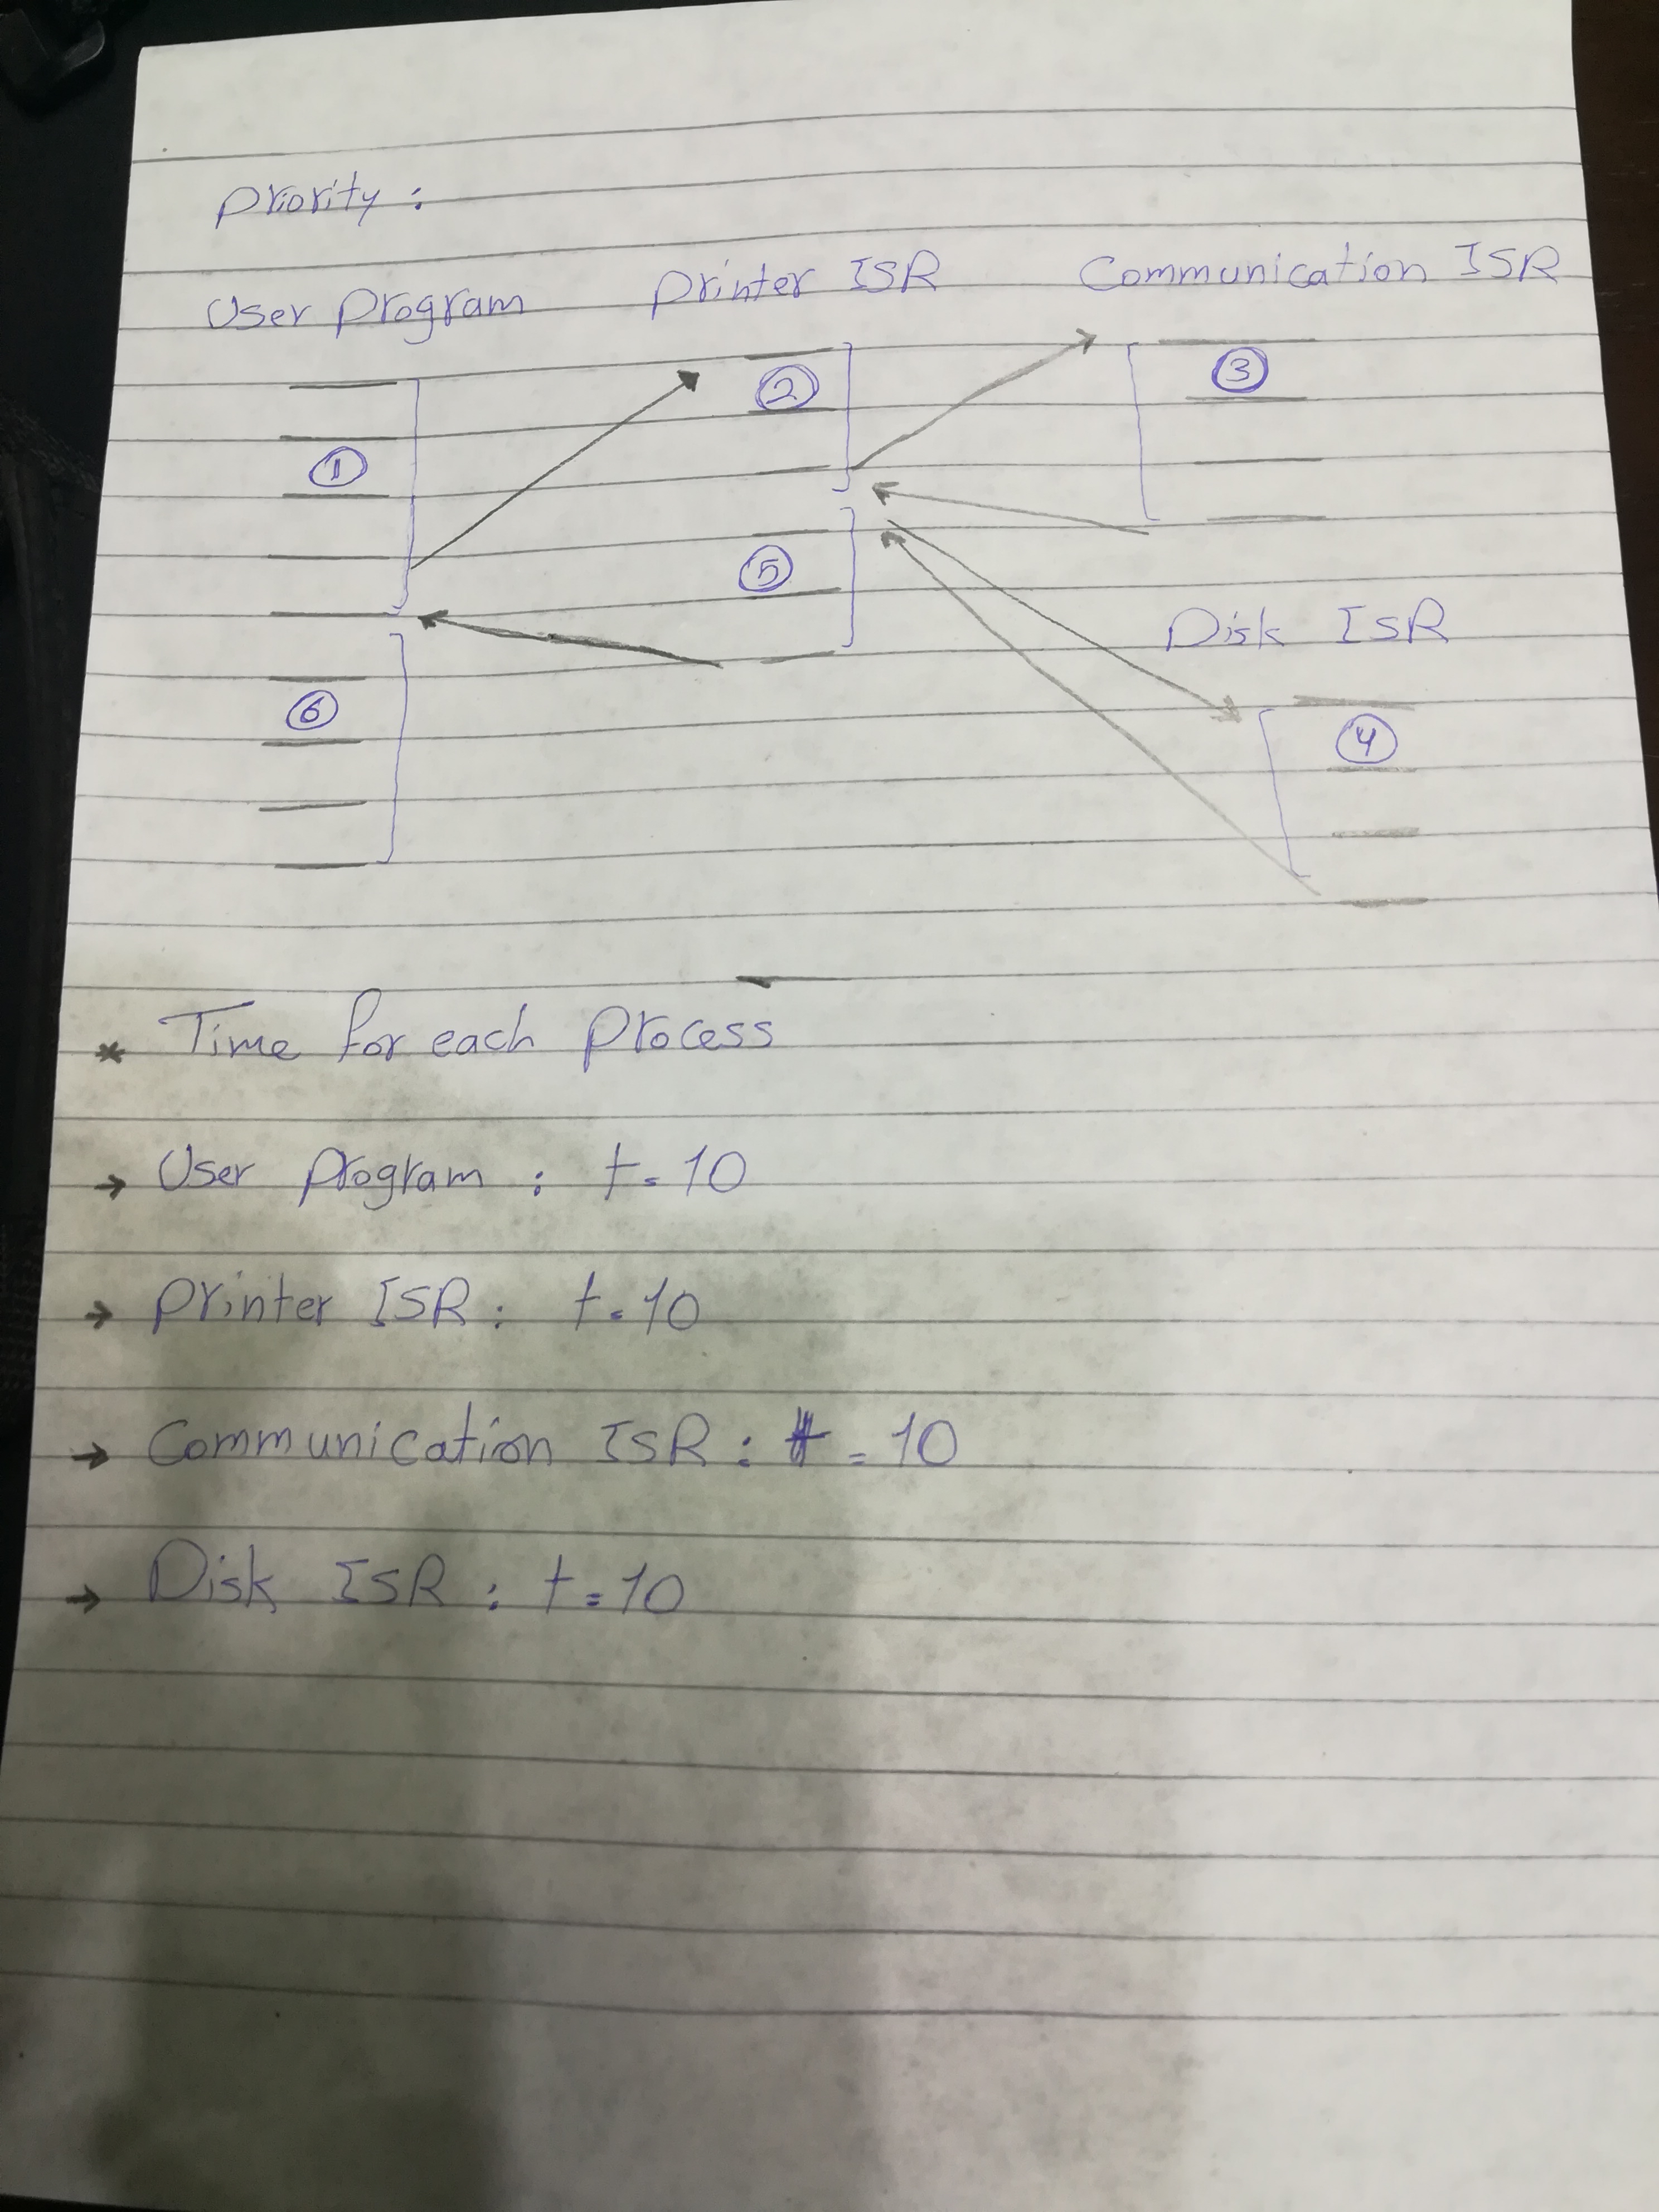 Priority :
User Program Printer ISR Communication ISR
① ② ③
⑤
Disk ISR
⑥ ④
* Time for each Process
→ User Program : t = 10
→ Printer ISR : t = 10
→ Communication ISR : t = 10
→ Disk ISR : t = 10